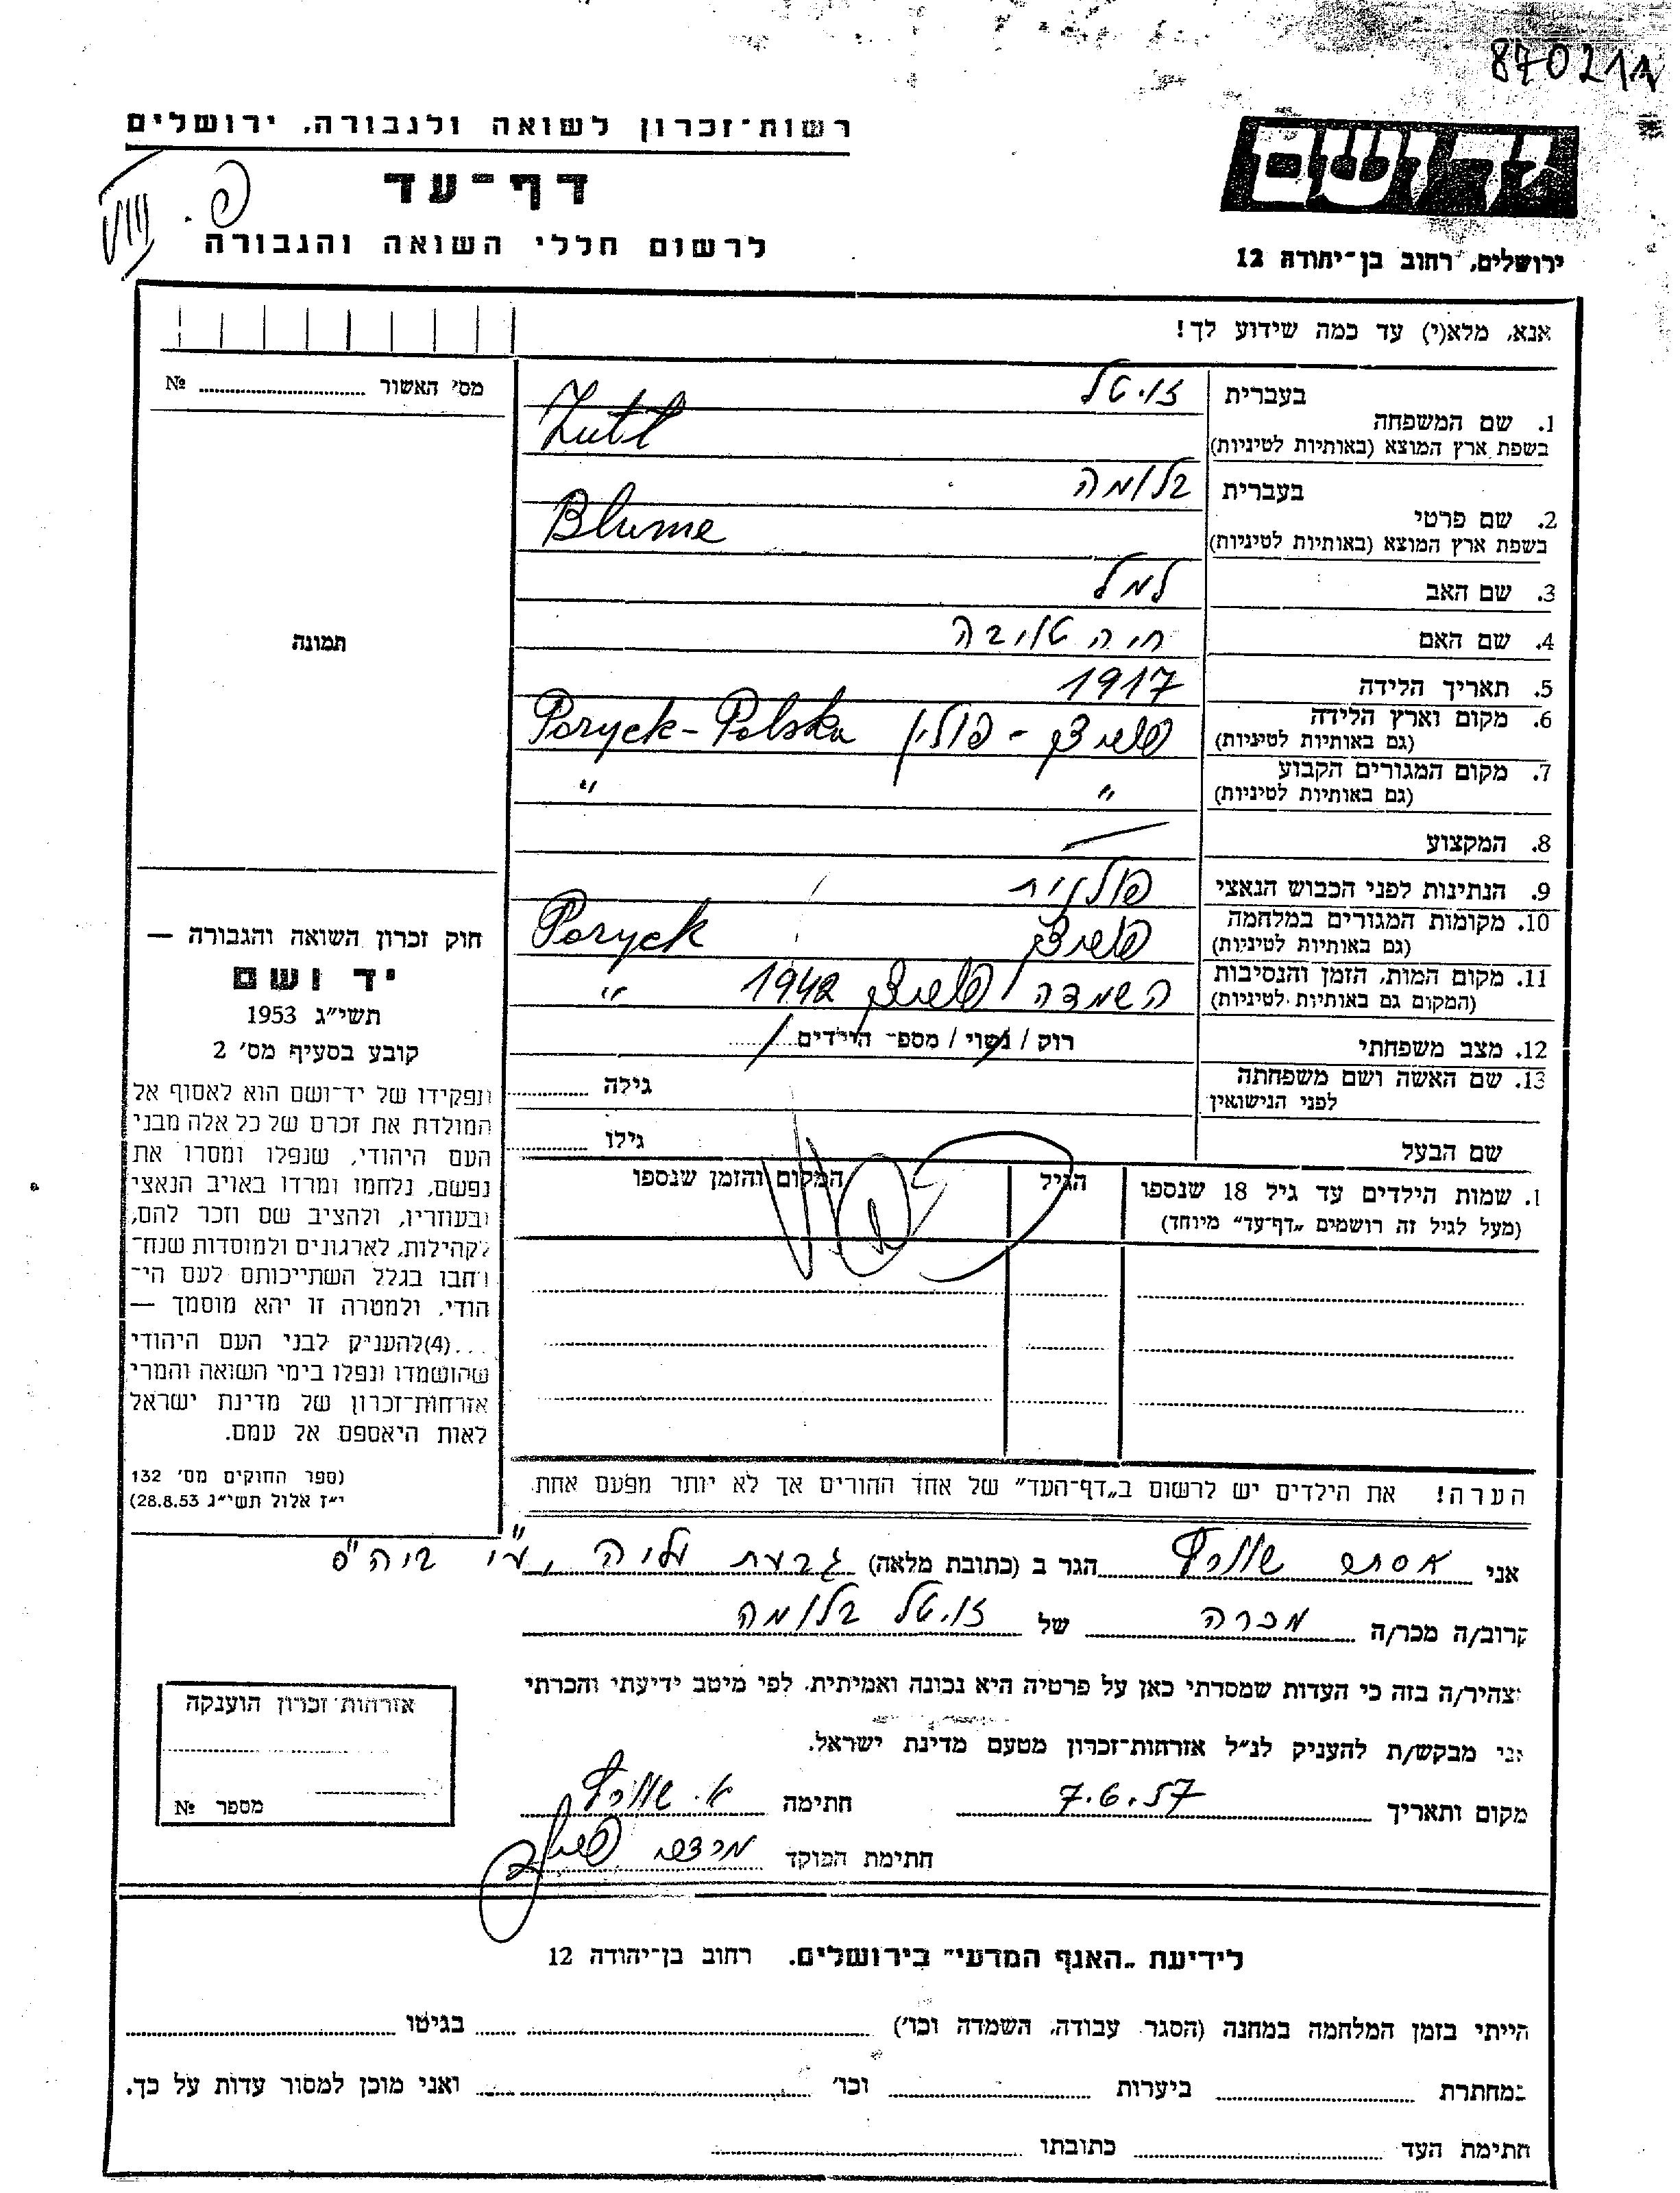 870211
רשות־זכרון לשואה ולגבורה, ירושלים
דף־עד
לרשום חללי השואה והגבורה
יד ושם
ירושלים, רחוב בן־יהודה 12
VIII
פ.
אנא, מלא(י) עד כמה שידוע לך!
מס׳ האשור № 
1. שם המשפחה בעברית זויטל
בשפת ארץ המוצא (באותיות לטיניות) Zutl
2. שם פרטי בעברית בלומה
בשפת ארץ המוצא (באותיות לטיניות) Blume
3. שם האב למל
4. שם האם חיה טויבה
5. תאריך הלידה 1917
6. מקום וארץ הלידה (גם באותיות לטיניות) פוריצק - פולין Poryck - Polska
7. מקום המגורים הקבוע (גם באותיות לטיניות) " "
8. המקצוע —
9. הנתינות לפני הכבוש הנאצי פולנית
10. מקומות המגורים במלחמה (גם באותיות לטיניות) פוריצק Poryck
11. מקום המות, הזמן והנסיבות (המקום גם באותיות לטיניות) השמדה פוריצק 1942 "
12. מצב משפחתי רוק / נשוי / מספ׳ הילדים
13. שם האשה ושם משפחתה לפני הנישואין גילה
שם הבעל גילו
1. שמות הילדים עד גיל 18 שנספו (מעל לגיל זה רושמים „דף־עד" מיוחד)
הגיל
המקום והזמן שנספו
הערה! את הילדים יש לרשום ב„דף־העד" של אחד ההורים אך לא יותר מפעם אחת.
תמונה
חוק זכרון השואה והגבורה —
יד ושם
תשי"ג 1953
קובע בסעיף מס׳ 2
ותפקידו של יד־ושם הוא לאסוף אל
המולדת את זכרם של כל אלה מבני
העם היהודי, שנפלו ומסרו את
נפשם, נלחמו ומרדו באויב הנאצי
ובעוזריו, ולהציב שם וזכר להם,
לקהילות, לארגונים ולמוסדות שנח־
רבו בגלל השתייכותם לעם הי־
הודי. ולמטרה זו יהא מוסמך —
...(4)להעניק לבני העם היהודי
שהושמדו ונפלו בימי השואה והמרי
אזרחות־זכרון של מדינת ישראל
לאות היאספם אל עמם.
(ספר החוקים מס׳ 132
י"ז אלול תשי"ג 28.8.53)
אני אסתר הגר ב (כתובת מלאה) גבעת
קרוב/ה מכר/ה מכרה של זויטל בלומה
מצהיר/ה בזה כי העדות שמסרתי כאן על פרטיה היא נכונה ואמיתית. לפי מיטב ידיעתי והכרתי
אני מבקש/ת להעניק לנ"ל אזרחות־זכרון מטעם מדינת ישראל.
מקום ותאריך 7.6.57 חתימה
חתימת הפוקד
אזרחות זכרון הוענקה
מספר №
לידיעת „האגף המדעי" בירושלים. רחוב בן־יהודה 12
הייתי בזמן המלחמה במחנה (הסגר עבודה, השמדה וכו׳) בגיטו
במחתרת ביערות וכו׳ ואני מוכן למסור עדות על כך.
חתימת העד כתובתו